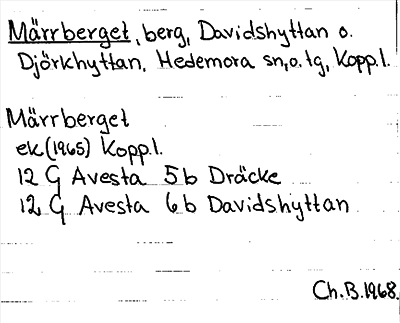 Märrberget, berg, Davidshyttan o.
Djörkhyttan, Hedemora sn, o. tg, Kopp.l.
Märrberget
ek (1965) Kopp.l.
12 G Avesta 5b Dräcke
12 G Avesta 6b Davidshyttan
Ch.B.1968.